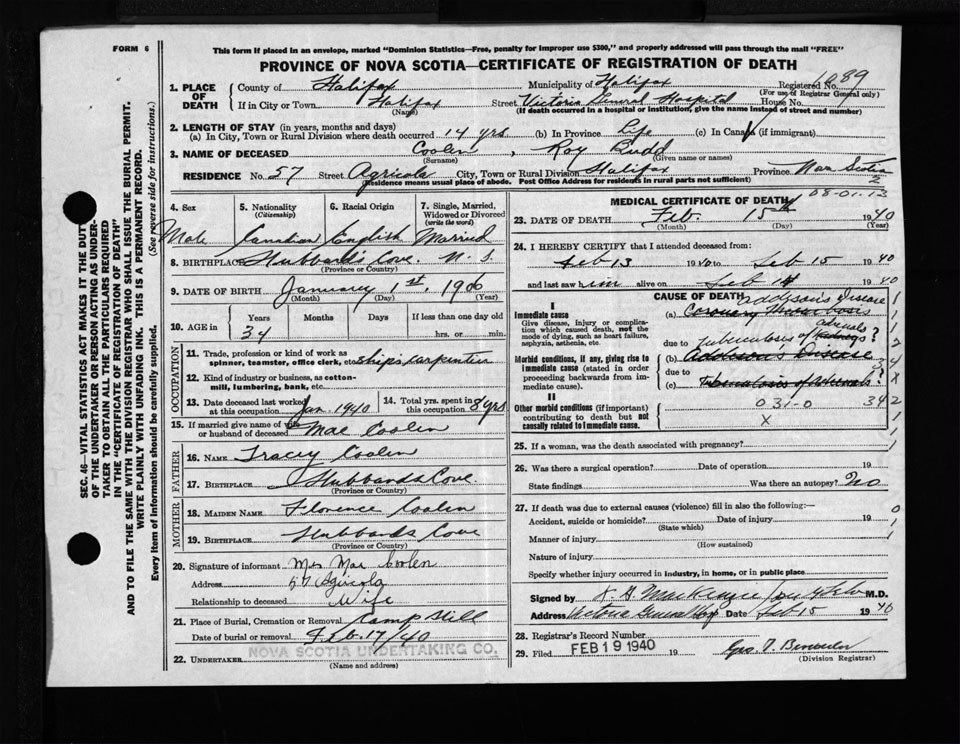 FORM 6
This form if placed in an envelope, marked "Dominion Statistics—Free, penalty for improper use $300," and properly addressed will pass through the mail "FREE"
PROVINCE OF NOVA SCOTIA—CERTIFICATE OF REGISTRATION OF DEATH
SEC. 46—VITAL STATISTICS ACT MAKES IT THE DUTY
OF THE UNDERTAKER OR PERSON ACTING AS UNDER-
TAKER TO OBTAIN ALL THE PARTICULARS REQUIRED
IN THE "CERTIFICATE OF REGISTRATION OF DEATH"
AND TO FILE THE SAME WITH THE DIVISION REGISTRAR WHO SHALL ISSUE THE BURIAL PERMIT.
WRITE PLAINLY WITH UNFADING INK. THIS IS A PERMANENT RECORD.
Every item of information should be carefully supplied. (See reverse side for instructions.)
1. PLACE OF DEATH
County of Halifax Municipality of Halifax Registered No. 1089
(For use of Registrar General only)
If in City or Town Halifax Street Victoria General Hospital House No.
(Name) (If death occurred in a hospital or institution, give the name instead of street and number)
2. LENGTH OF STAY (in years, months and days)
(a) In City, Town or Rural Division where death occurred 14 yrs (b) In Province Life (c) In Canada (if immigrant)
3. NAME OF DECEASED Coolen, Roy Budd
(Surname) (Given name or names)
RESIDENCE No. 57 Street Agricola City, Town or Rural Division Halifax Province Nova Scotia
(Residence means usual place of abode. Post Office Address for residents in rural parts not sufficient)
2
08-01-13
4. Sex 5. Nationality (Citizenship) 6. Racial Origin 7. Single, Married, Widowed or Divorced (write the word)
Male Canadian English Married
8. BIRTHPLACE Hubbards Cove N. S.
(Province or Country)
9. DATE OF BIRTH January 1st, 1906
(Month) (Day) (Year)
10. AGE in Years Months Days If less than one day old
34 hrs. or min.
OCCUPATION
11. Trade, profession or kind of work as
spinner, teamster, office clerk, etc. Ship's Carpenter
12. Kind of industry or business, as cotton-
mill, lumbering, bank, etc.
13. Date deceased last worked at this occupation Jan. 1940
14. Total yrs. spent in this occupation 8 yrs
15. If married give name of wife
or husband of deceased Mae Coolen
FATHER
16. NAME Tracey Coolen
17. BIRTHPLACE Hubbards Cove
(Province or Country)
MOTHER
18. MAIDEN NAME Florence Coolen
19. BIRTHPLACE Hubbards Cove
(Province or Country)
20. Signature of informant Mrs Mae Coolen
Address 57 Agricola
Relationship to deceased Wife
21. Place of Burial, Cremation or Removal Camp Hill
Date of burial or removal Feb. 17/40
22. UNDERTAKER NOVA SCOTIA UNDERTAKING CO.
(Name and address)
MEDICAL CERTIFICATE OF DEATH
23. DATE OF DEATH Feb. 15th 1940
(Month) (Day) (Year)
24. I HEREBY CERTIFY that I attended deceased from:
Feb 13 1940 to Feb 15 1940
and last saw him alive on Feb 14 1940
CAUSE OF DEATH
I
Immediate cause
Give disease, injury or complication which caused death, not the mode of dying, such as heart failure, asphyxia, asthenia, etc.
(a) Coronary Thrombosis Addison's Disease
due to Tuberculosis of Kidneys adrenals?
Morbid conditions, if any, giving rise to immediate cause (stated in order proceeding backwards from immediate cause).
(b) Addison's Disease
due to
(c) Tuberculosis of Adrenals?
II
Other morbid conditions (if important) contributing to death but not causally related to immediate cause.
031-0 342
X
25. If a woman, was the death associated with pregnancy?
26. Was there a surgical operation? Date of operation 19
State findings Was there an autopsy? No
27. If death was due to external causes (violence) fill in also the following:—
Accident, suicide or homicide? Date of injury 19
(State which)
Manner of injury
(How sustained)
Nature of injury
Specify whether injury occurred in industry, in home, or in public place
Signed by K. G. MacKenzie M.D.
Address Victoria General Hosp Date Feb 15 1940
28. Registrar's Record Number
29. Filed FEB 19 1940 19
(Division Registrar)